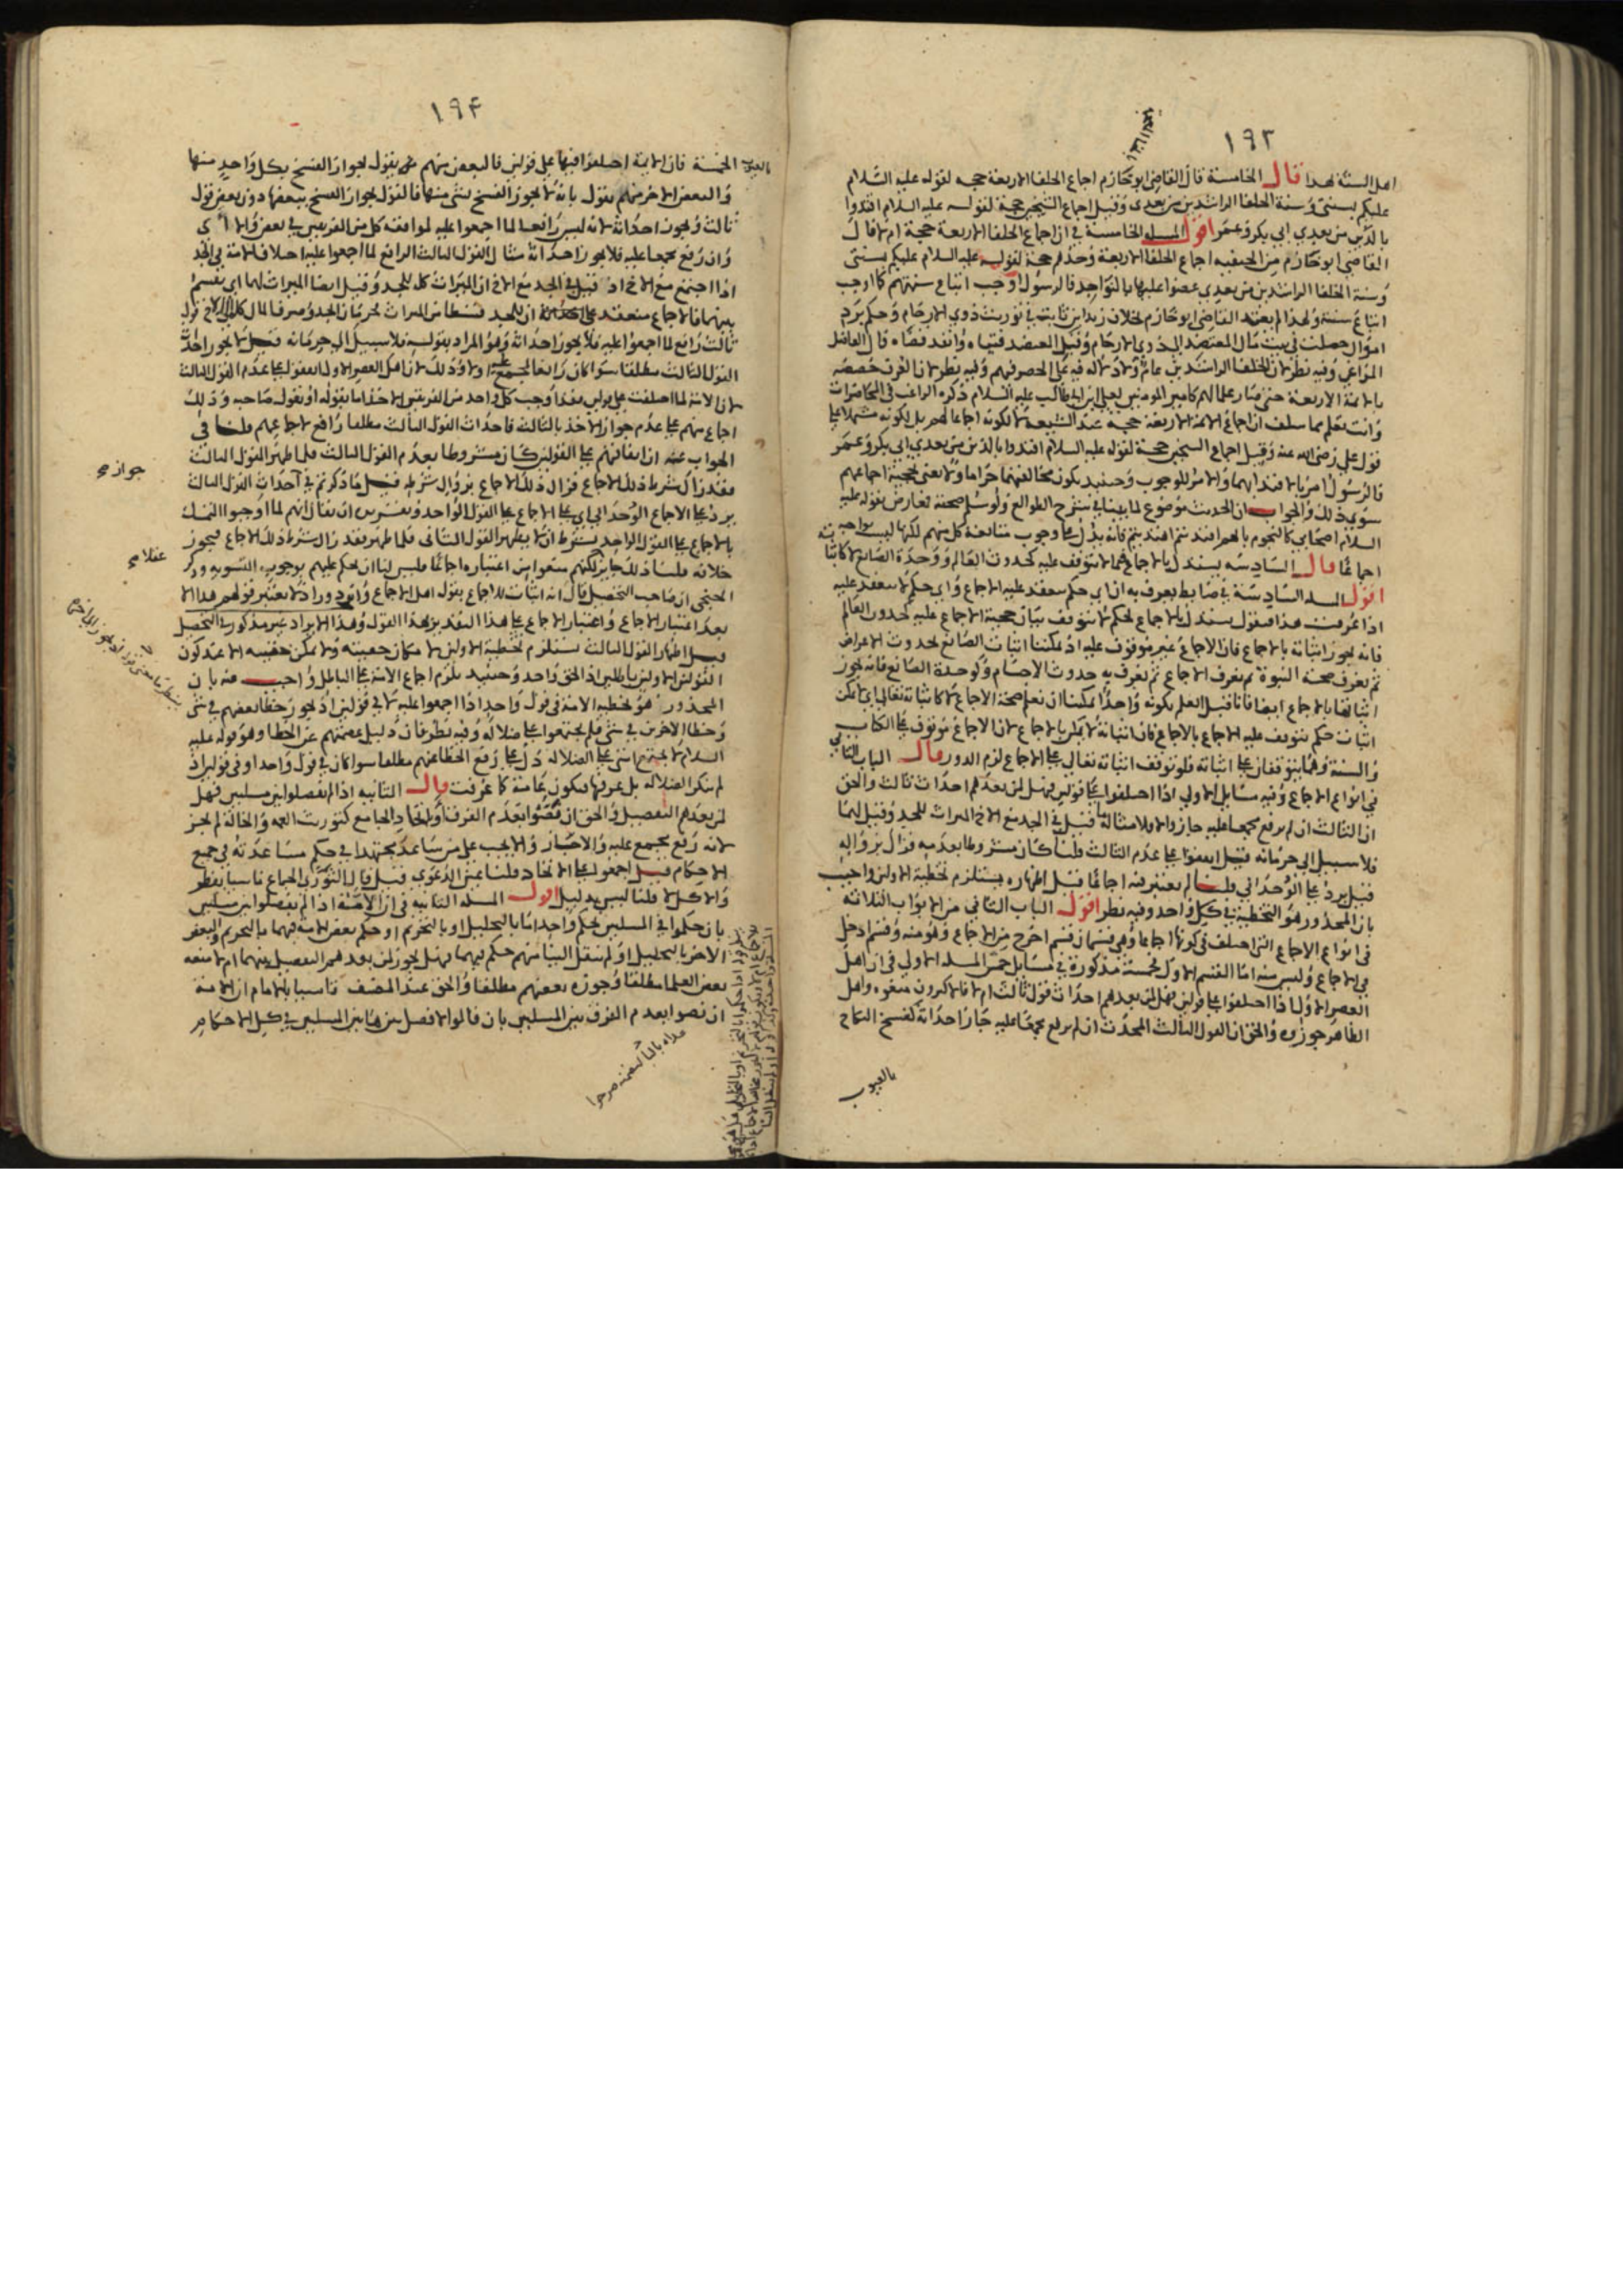 ١٩٣
اهل السنة لهذا قال الخامسة قال القاضي ابو خازم اجماع الخلفا الاربعة حجة لقوله عليه السلام
عليكم بسنتي وسنة الخلفا الراشدين من بعدي وقيل اجماع الشيخين حجة لقوله عليه السلام اقتدوا
بالذين من بعدي ابي بكر وعمر اقول المسله الخامسة في ان اجماع الخلفا الاربعة حجة ام لا قال
القاضي ابو خازم من الحنفيه اجماع الخلفا الاربعة وحدهم حجة لقوله عليه السلام عليكم بسنتي
وسنة الخلفا الراشدين من بعدي عضوا عليها بالنواجد فالرسول اوجب اتباع سنتهم كما اوجب
اتباع سنته ولهذا لم يعتد القاضي ابو خازم بخلاف زيد ابن ثابت في توريث ذوي الارحام وحكم برد
اموال حصلت في بيت مال المعتضد الى ذوي الارحام وقبل المعتضد فتياه وانفد قضاه قال الفاضل
المراغي وفيه نظر لان الخلفا الراشدين عام ولا دلاله فيه على الحصر فيهم وفيه نظر لان العرف خصصه
بالايمة الاربعة حتى صار علما لهم كامير المومنين لعلي ابن ابي طالب عليه السلام ذكره الراغب في المحاضرات
وانت تعلم مما سلف ان اجماع الايمة الاربعة حجة عند الشيعة لا لكونه اجماعا لهم بل لكونه مشتملا على
قول علي رضي الله عنه وقيل اجماع الشيخين حجة لقوله عليه السلام اقتدوا بالذين من بعدي ابي بكر وعمر
فالرسول امر بالاقتدا بهما والامر للوجوب وحينيد يكون مخالفتهما حراما ولا نعني بحجية اجماعهم
سوى ذلك والجواب ان الحديث موضوع لما بينا في شرح الطوالع ولو سلم صحته تعارض بقوله عليه
السلام اصحابي كالنجوم بايهم اقتديتم اهتديتم فانه يدل على وجوب متابعة كل منهم لكنها ليست بواجبة
اجماعا قال السادسه يستدل بالاجماع فيما لا يتوقف عليه كحدوث العالم ووحدة الصانع لا كاثباته
اقول المسله السادسة في ضابط يعرف به ان اي حكم ينعقد عليه الاجماع واي حكم لا ينعقد عليه
اذا عرفت هذا فنقول يستدل بالاجماع لحكم لا يتوقف بيان حجية الاجماع عليه كحدوث العالم
فانه يجوز اثباته بالاجماع فان الاجماع غير موقوف عليه اذ يمكننا اثبات الصانع بحدوث الاعراض
ثم يعرف صحة النبوة ثم يعرف الاجماع ثم يعرف به حدوث الاجسام وكوحدة الصانع فانه يجوز
اثباتها بالاجماع ايضا فانا قبل العلم بكونه واحدا يمكننا ان نعلم صحة الاجماع لا كاثباته تعالى اي لا يمكن
اثبات حكم يتوقف عليه الاجماع بالاجماع فان اثباته لا يمكن بالاجماع لان الاجماع موقوف على الكتاب
والسنة وهما يتوقفان على اثباته فلو توقف اثباته تعالى على الاجماع لزم الدور قال الباب الثاني
في انواع الاجماع وفيه مسايل الاولى اذا اختلفوا على قولين فهل لمن بعدهم احداث ثالث والحق
ان الثالث ان لم يرفع مجمعا عليه جاز والا فلا مثاله ما قيل في الجد مع الاخ الميراث للجد وقيل لهما
فلا سبيل الى حرمانه قيل اتفقوا على عدم الثالث قلنا كان مشروطا بعدمه فزال بزواله
قيل يرد على الوحداني قلنا لم يعتبر فيه اجماعا قيل اظهاره يستلزم تخطية الاولين واجيب
بان المحذور هو التخطية في كل واحد وفيه نظر اقول الباب الثاني من الابواب الثلاثة
في انواع الاجماع التي اختلف في كونها اجماعا وهي قسمان قسم اخرج من الاجماع وهو منه وقسم ادخل
في الاجماع وليس منه اما القسم الاول فخمسة مذكورة في مسايل خمس المسله الاولى في ان اهل
العصر الاول اذا اختلفوا على قولين فهل لمن بعدهم احداث قول ثالث ام لا فالاكثرون منعوه واهل
الظاهر جوزوه والحق ان القول الثالث المحدث ان لم يرفع مجمعا عليه جاز احداثه كفسخ النكاح
بالعيوب
١٩٤
بالعيوب الخمسة فان الايمة اختلفوا فيها على قولين فالبعض منهم من يقول بجواز الفسخ بكل واحد منها
والبعض الاخر منهم يقول بانه لا يجوز الفسخ بشي منها فالقول بجواز الفسخ ببعضها دون بعض قول
ثالث ويجوز احداثه لانه ليس رافعا لما اجمعوا عليه لموافقة كل من الفريقين في بعض
وان رفع مجمعا عليه فلا يجوز احداثه مثال القول الثالث الرافع لما اجمعوا عليه اختلاف الامة في الجد
اذا اجتمع مع الاخ اذ قيل في الجد مع الاخ ان الميراث كله للجد وقيل ايضا الميراث لهما اي يقسم
بينهما فالاجماع منعقد على ان للجد قسطا من الميراث فحرمان الجد وصرف المال كله الى الاخ قول
ثالث رافع لما اجمعوا عليه فلا يجوز احداثه وهو المراد بقوله فلا سبيل الى حرمانه قيل لا يجوز احداث
القول الثالث مطلقا سوا كان رافعا لمجمع عليه او لا وذلك لان اهل العصر الاول اتفقوا على عدم القول الثالث
لان الامة لما اختلفت على قولين فقد اوجب كل واحد من الفريقين الاخذ اما بقوله او بقول صاحبه وذلك
اجماع منهم على عدم جواز الاخذ بالثالث فاحداث القول الثالث مطلقا رافع لاجماعهم قلنا في
الجواب عنه ان اتفاقهم على القولين كان مشروطا بعدم القول الثالث فلما ظهر القول الثالث
فقد زال شرط ذلك الاجماع فزال ذلك الاجماع بزوال شرطه قيل ما ذكرتم في احداث القول الثالث
يرد على الاجماع الوحداني اي على الاجماع على القول الواحد وتقريره ان يقال انهم لما اوجبوا التمسك
بالاجماع على القول الواحد بشرط ان لا يظهر القول الثاني فلما ظهر فقد زال شرط ذلك الاجماع فيجوز
خلافه قلنا ذلك جايز لكنهم منعوا من اعتباره اجماعا فليس لنا ان نحكم عليهم بوجوب التسويه وذكر
الخنجي ان صاحب التحصيل قال انه اثبات للاجماع بقول اهل الاجماع دور اذ لا يعتبر قولهم هذا الا
بعد اعتبار الاجماع واعتبار الاجماع على هذا التقدير بهذا القول وهذا الايراد غير مذكور في التحصيل
قيل اظهار القول الثالث يستلزم تخطية الاولين لامكان حقيته ولا يمكن حقيته الا عند كون
القولين الاولين باطلين اذ الحق واحد وحينيد يلزم اجماع الامة على الباطل واجيب عنه بان
المحذور هو تخطية الامة في قول واحد اذا اجمعوا عليه لا في قولين اذ يجوز خطا بعضهم في شي
وخطا الاخرين في شي فلم يجتمعوا على ضلالة وفيه نظر فان دليل عصمتهم عن الخطا وهو قوله عليه
السلام لا تجتمع امتي على الضلاله دل على رفع الخطا عنهم مطلقا سوا كان في قول واحد او في قولين اذ
لم ينكر الضلاله بل عرفها فيكون عامة كما عرفت قال الثانيه اذا لم يفصلوا بين مسلتين فهل
لمن بعدهم التفصيل والحق ان نصوا بعدم الفرق او اتحاد الجامع كتوريث العمه والخالة لم يجز
لانه رفع مجمع عليه والا جاز والا يجب على من ساعد مجتهدا في حكم مساعدته في جميع
الاحكام قيل اجمعوا على الاتحاد قلنا عين الدعوى قيل قال الثوري الجماع ناسيا يفطر
والاكل لا قلنا ليس بدليل اقول المسله الثانيه في ان الامة اذا لم يفصلوا بين مسلتين
بان حكموا في المسلتين بحكم واحد اما بالتحليل او بالتحريم او حكم بعض الامة فيهما بالتحريم والبعض
الاخر بالتحليل او لم ينقل الينا منهم حكم فيهما فهل يجوز لمن بعدهم التفصيل بينهما ام لا منعه
بعض العلما مطلقا وجوزه بعضهم مطلقا والحق عند المصنف تاسيا بالامام ان الامة
ان نصوا بعدم الفرق بين المسلتين بان قالوا لا فصل بين هاتين المسلتين في كل الاحكام
جوازه صح
عقلا صح